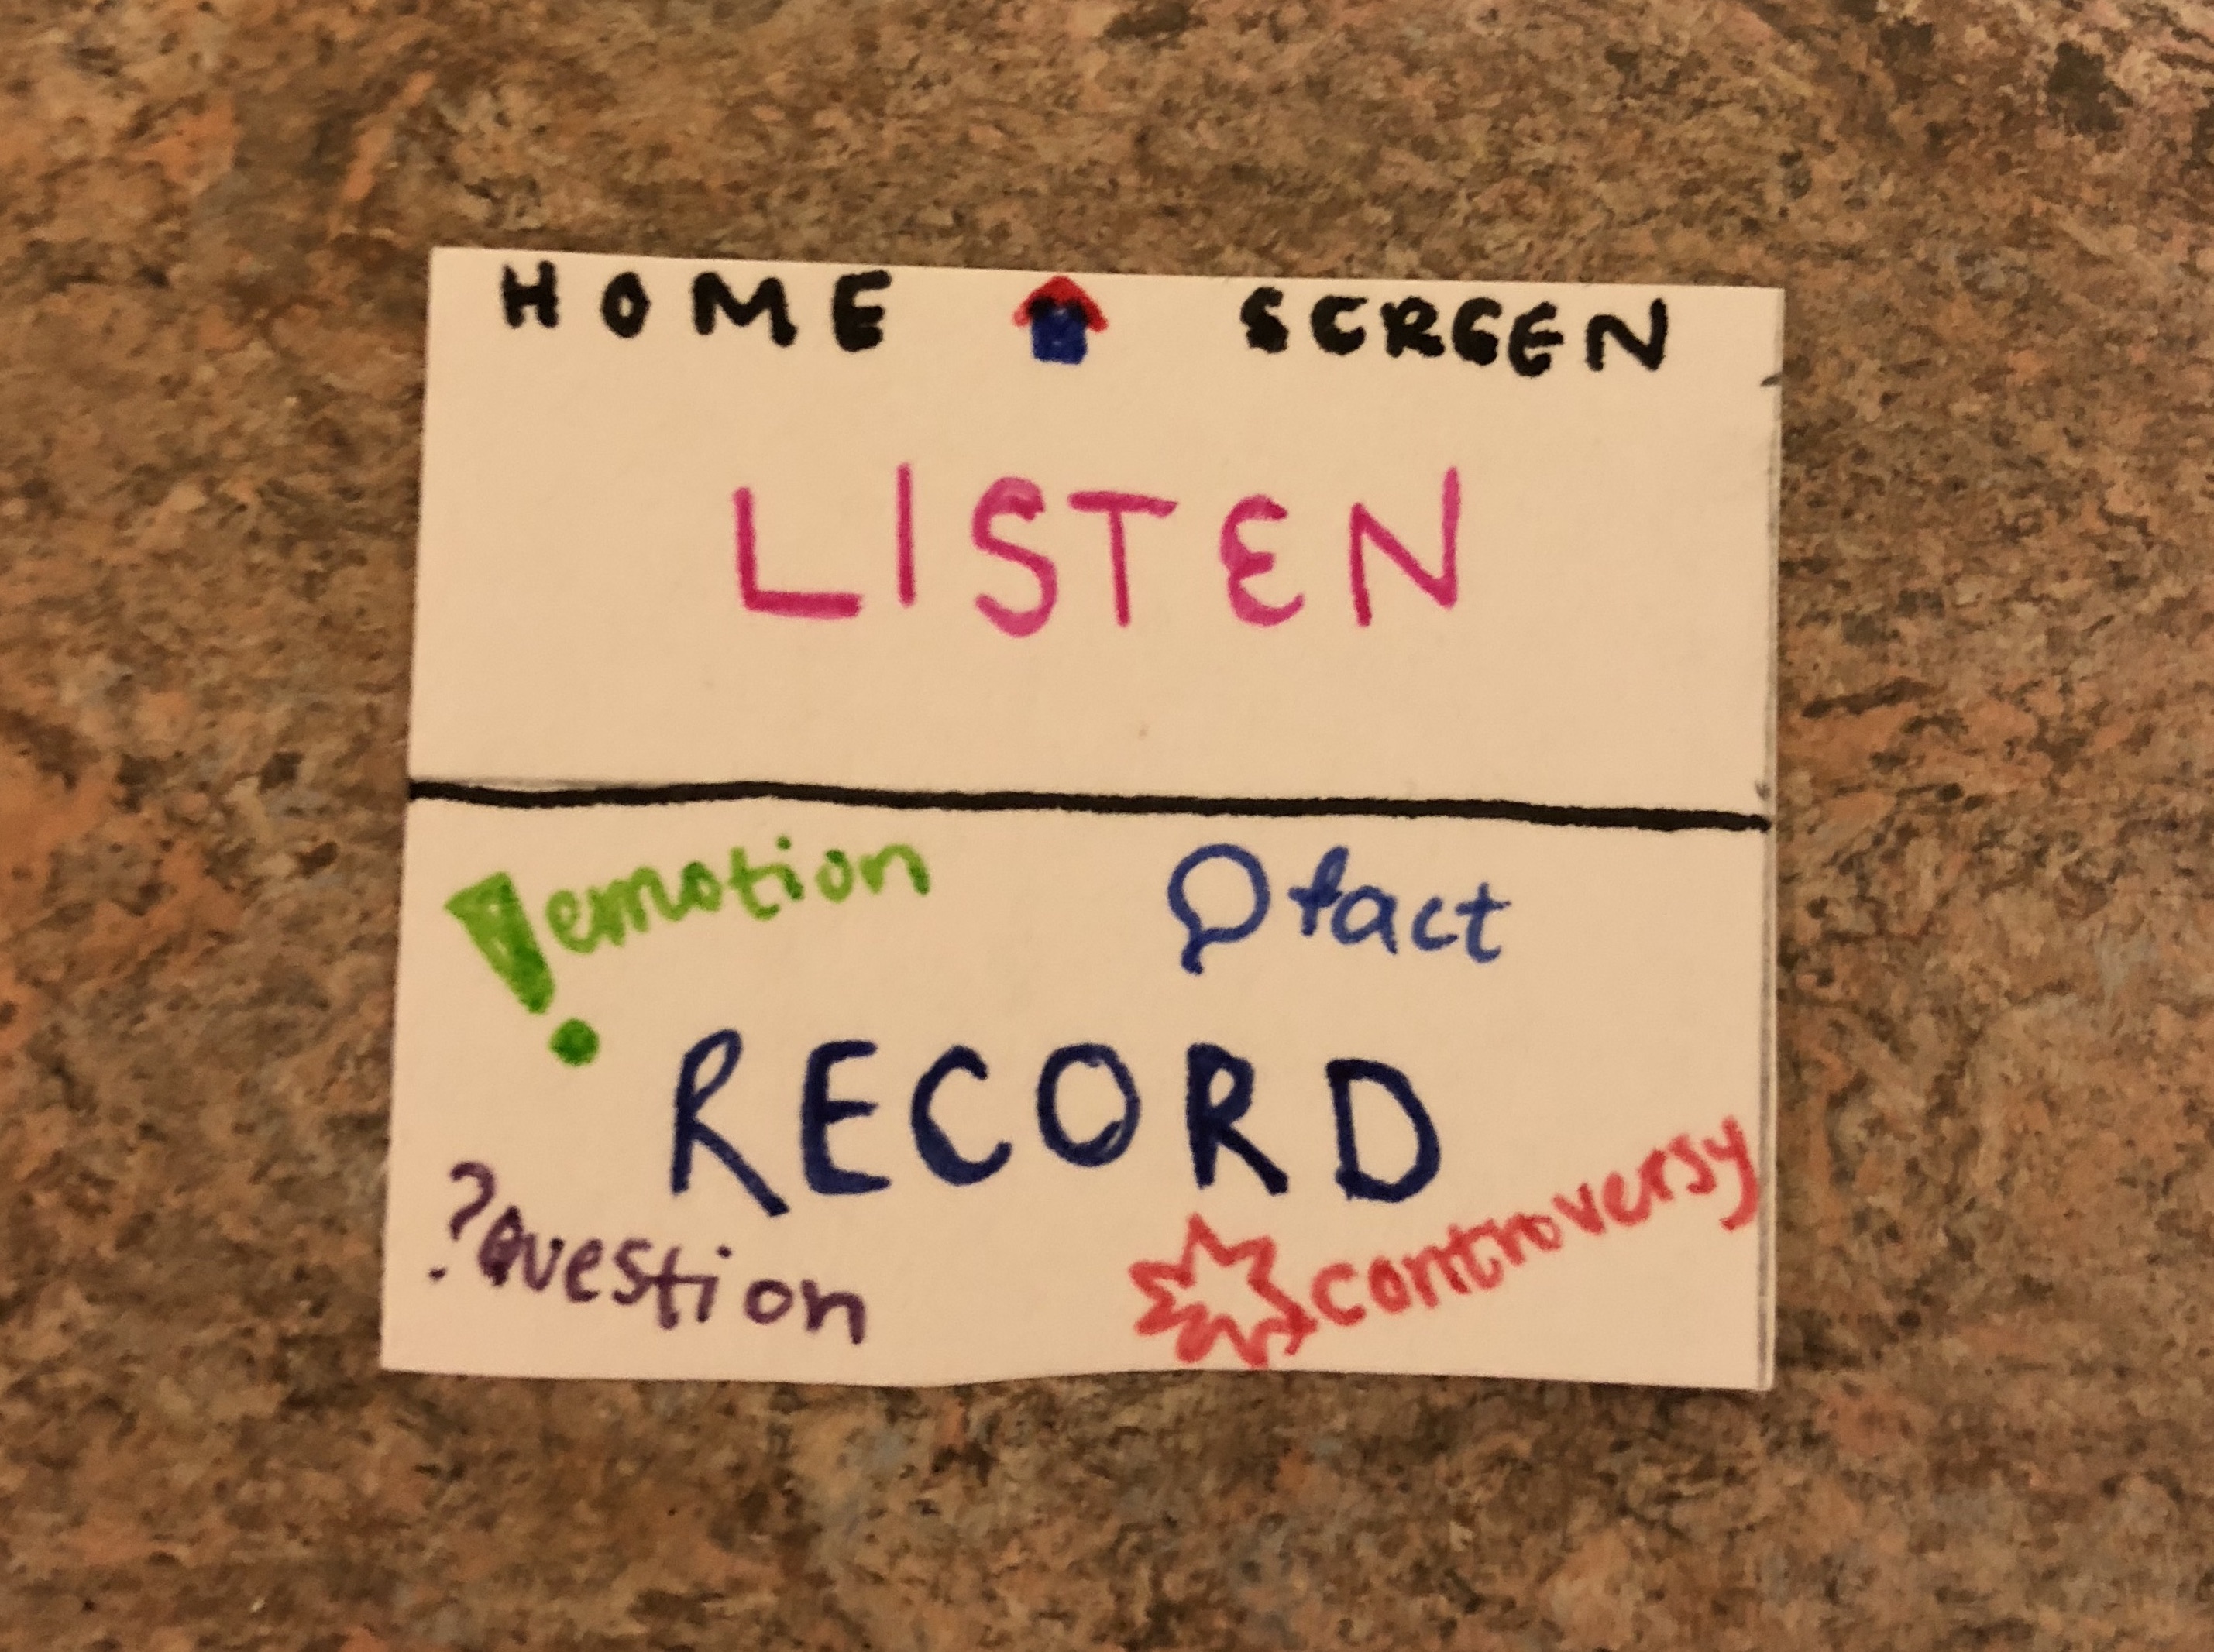 HOME SCREEN
LISTEN
! emotion
fact
RECORD
? Question
controversy